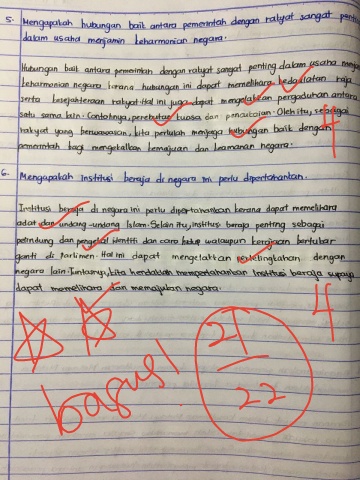 5. Mengapakah hubungan baik antara pemerintah dengan rakyat sangat
dalam usaha menjamin keharmonian negara.
Hubungan baik antara pemerintah dengan rakyat sangat penting dalam usaha
keharmonian negara kerana hubungan ini dapat memelihara kedaulatan raja
serta kesejahteraan rakyat. Hal ini juga dapat mengelakkan pergaduhan antara
satu sama lain. Contohnya, perebutan kuasa dan penindasan. Oleh itu, sebagai
rakyat yang berwawasan, kita perlulah menjaga hubungan baik dengan
pemerintah bagi mengekalkan kemajuan dan keamanan negara.
4
6. Mengapakah institusi beraja di negara ini perlu dipertahankan.
Institusi beraja di negara ini perlu dipertahankan kerana dapat memelihara
adat dan undang-undang Islam. Selain itu, institusi beraja penting sebagai
pelindung dan pengekal identiti dan cara hidup walaupun kerajaan bertukar
ganti di Parlimen. Hal ini dapat mengelakkan pertelingkahan dengan
negara lain. Tuntasnya, kita hendaklah mempertahankan institusi beraja supaya
dapat memelihara dan memajukan negara.
4
bagus!
21
22